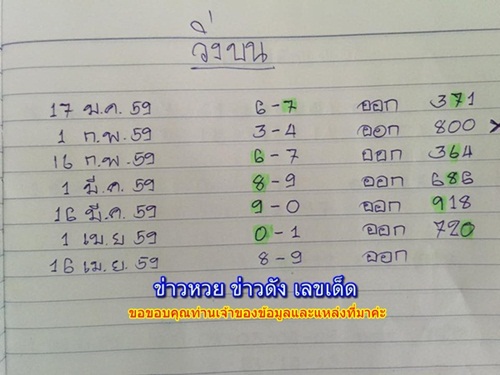 วิ่งบน
17 ม.ค. 59 6-7 ออก 371
1 ก.พ. 59 3-4 ออก 800
16 ก.พ. 59 6-7 ออก 364
1 มี.ค. 59 8-9 ออก 686
16 มี.ค. 59 9-0 ออก 918
1 เม.ย 59 0-1 ออก 720
16 เม.ย. 59 8-9 ออก
ข่าวหวย ข่าวดัง เลขเด็ด
ขอขอบคุณท่านเจ้าของข้อมูลและแหล่งที่มาค่ะ